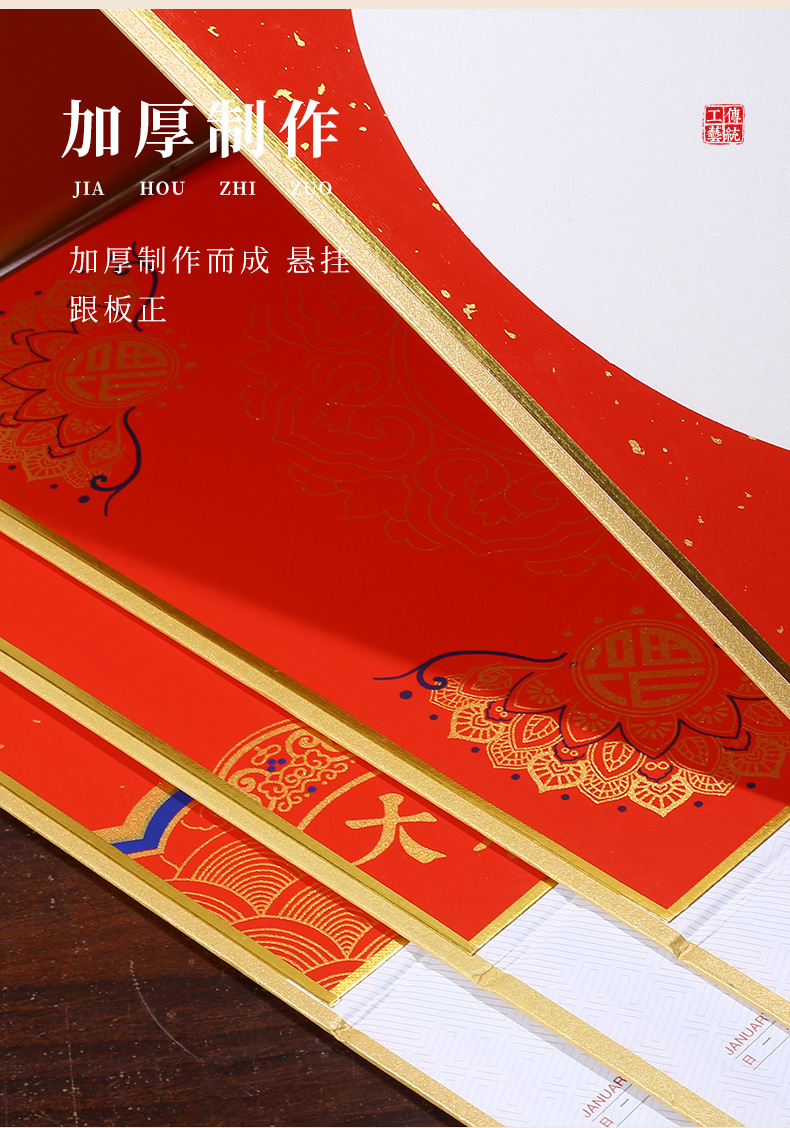 加厚制作
JIA HOU ZHI ZUO
傳統
工藝
加厚制作而成 悬挂
跟板正
福
福
大
JANUARY
日 一
JANUAR
日 一